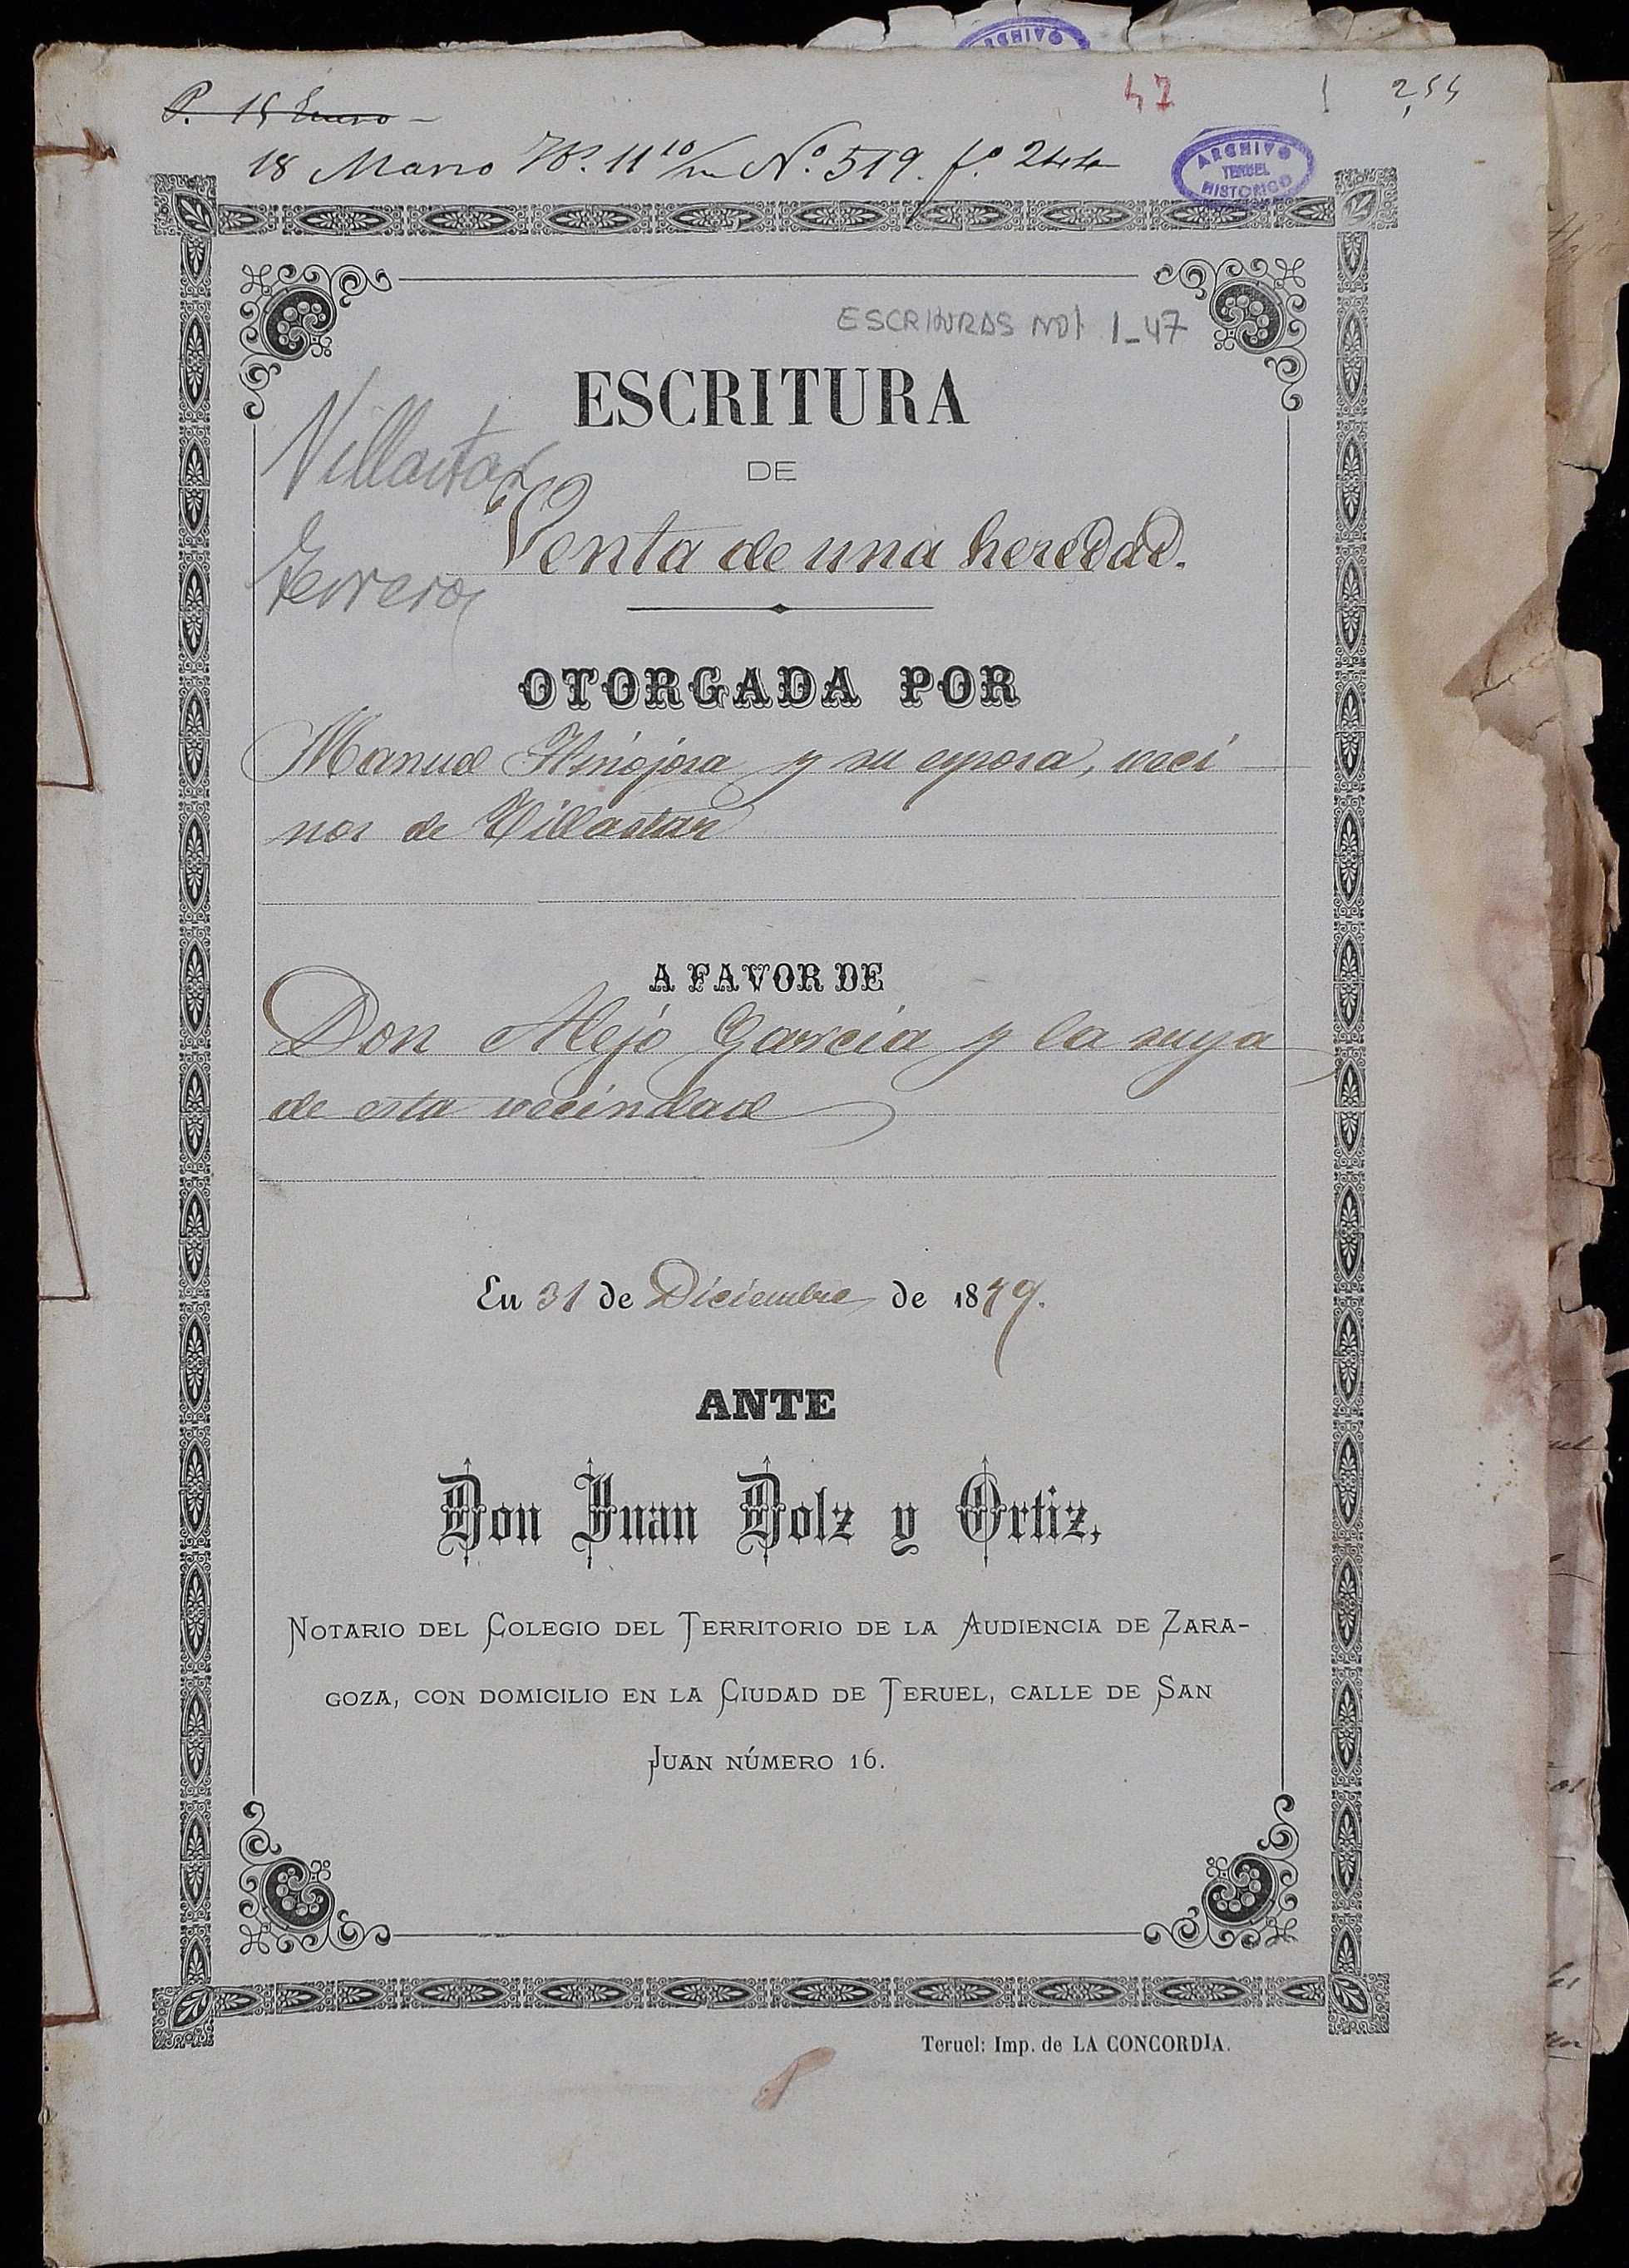 P. 15 Enero
47
2,54
18 Marzo Nº. 519. fº. 244
ARCHIVO
TERUEL
HISTORICO
ESCRITURAS NOT 1-47
ESCRITURA
DE
Villastar
Venta de una heredad.
Terrero
OTORGADA POR
Manuel Hinojosa y su esposa, veci
nos de Villastar
A FAVOR DE
Don Alejo Garcia y la suya
de esta vecindad
En 31 de Diciembre de 1879.
ANTE
Don Juan Dolz y Ortiz,
NOTARIO DEL COLEGIO DEL TERRITORIO DE LA AUDIENCIA DE ZARA-
GOZA, CON DOMICILIO EN LA CIUDAD DE TERUEL, CALLE DE SAN
JUAN NÚMERO 16.
Teruel: Imp. de LA CONCORDIA.